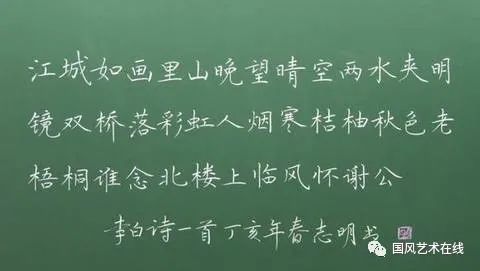 江城如画里山晚望晴空两水夹明
镜双桥落彩虹人烟寒桔柚秋色老
梧桐谁念北楼上临风怀谢公
李白诗一首丁亥年春志明书
国风艺术在线